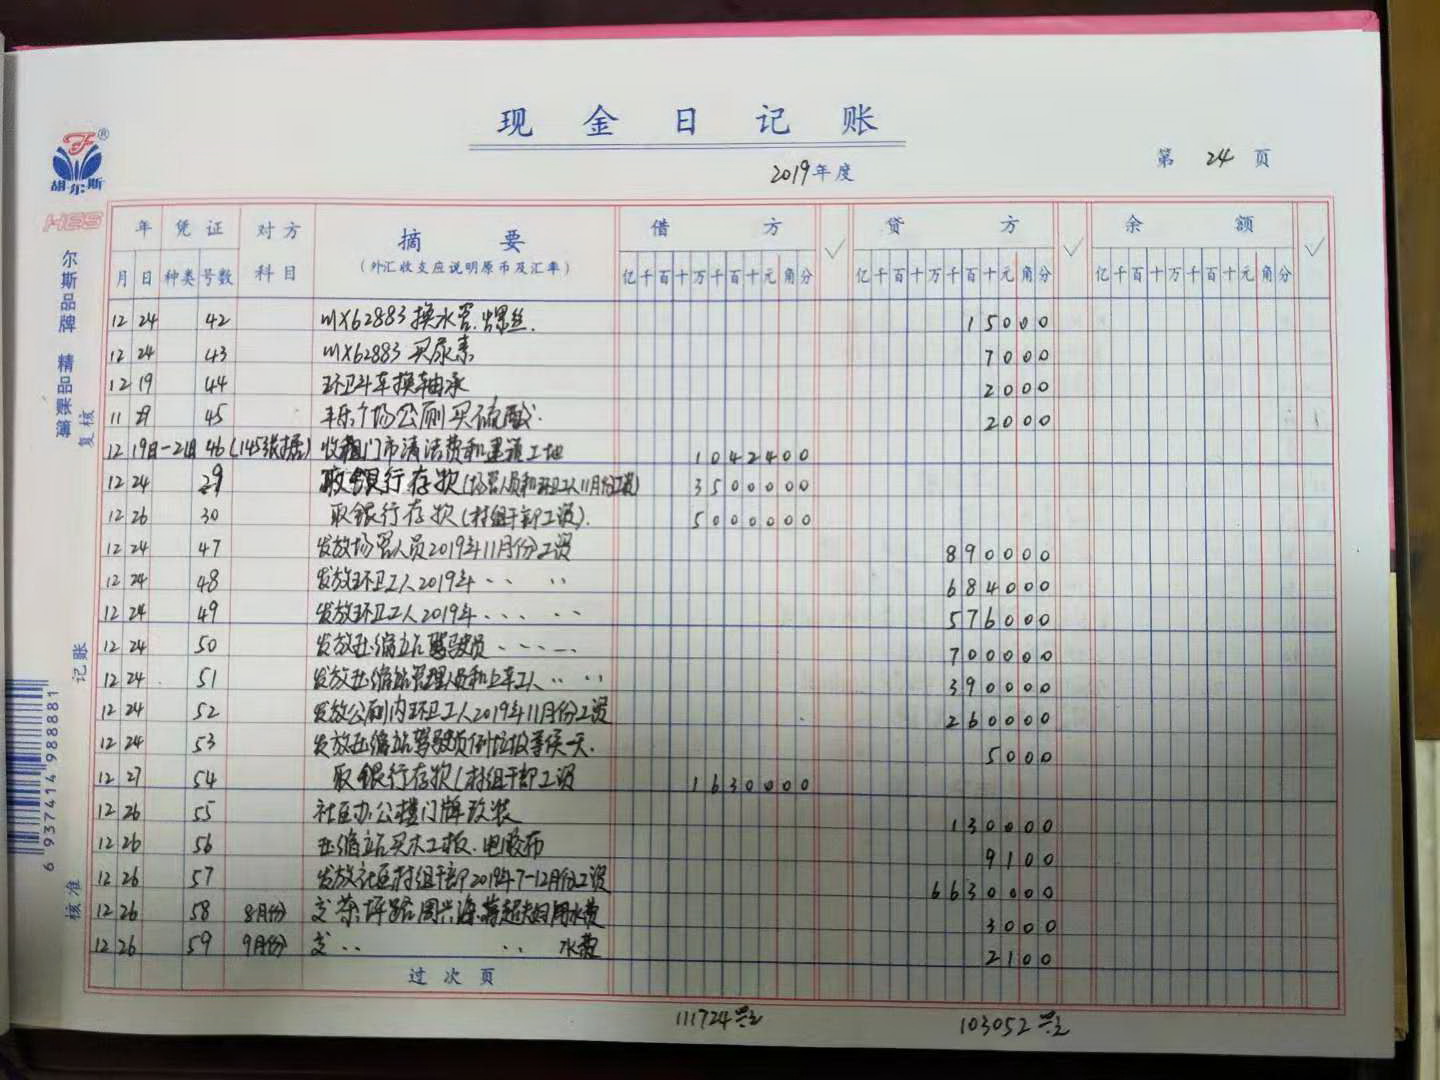 现金日记账
2019年度
第 24 页
胡尔斯
HES
尔斯品牌 精品账簿
复核
记账
核准
6 937414 988881
年 凭证 对方 摘要 借方 ✓ 贷方 ✓ 余额 ✓
月 日 种类 号数 科目 (外汇收支应说明原币及汇率) 亿千百十万千百十元角分 亿千百十万千百十元角分 亿千百十万千百十元角分
12 24 42 MX62883换水管.螺丝. 15000
12 24 43 MX62883买尿素 7000
12 19 44 环卫斗车换轴承 2000
11 29 45 丰乐广场公厕买硫酸. 2000
12 19日-21日 46 (145张据) 收租门市清洁费和建筑工地 1042400
12 24 29 取银行存款(场管人员和环卫工人11月份工资) 3500000
12 26 30 取银行存款(村组干部工资). 5000000
12 24 47 发放场管人员2019年11月份工资 890000
12 24 48 发放环卫工人2019年 、、 、、 684000
12 24 49 发放环卫工人2019年 、、、 、、 576000
12 24 50 发放压缩站驾驶员 700000
12 24 51 发放压缩站管理人员和上车工人 、、 、、 390000
12 24 52 发放公厕内环卫工人2019年11月份工资 260000
12 24 53 发放压缩站驾驶员倒垃圾等侯一天. 5000
12 27 54 取银行存款(村组干部工资 1630000
12 26 55 社区办公楼门牌改装 130000
12 26 56 压缩站买木工板.电胶布 9100
12 26 57 发放社区村组干部2019年7-12月份工资 6630000
12 26 58 8月份 支茶坪路周兴海.蒋超夫妇用水费 3000
12 26 59 9月份 支 、、 、、 水费 2100
过次页
111724 103052